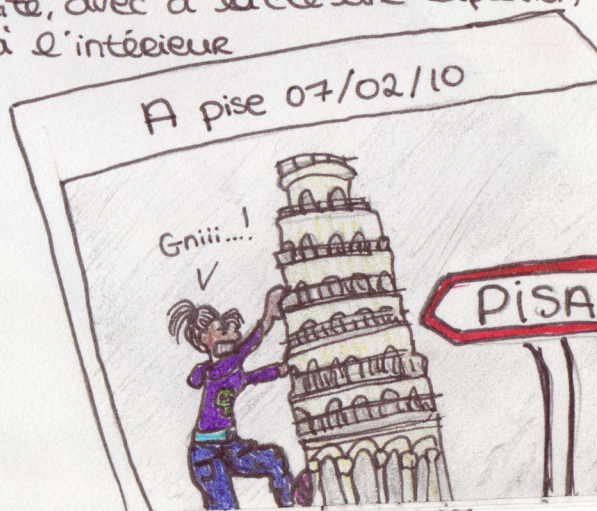 avec à
à l'intérieur
A pise 07/02/10
Gniii...!
PiSA